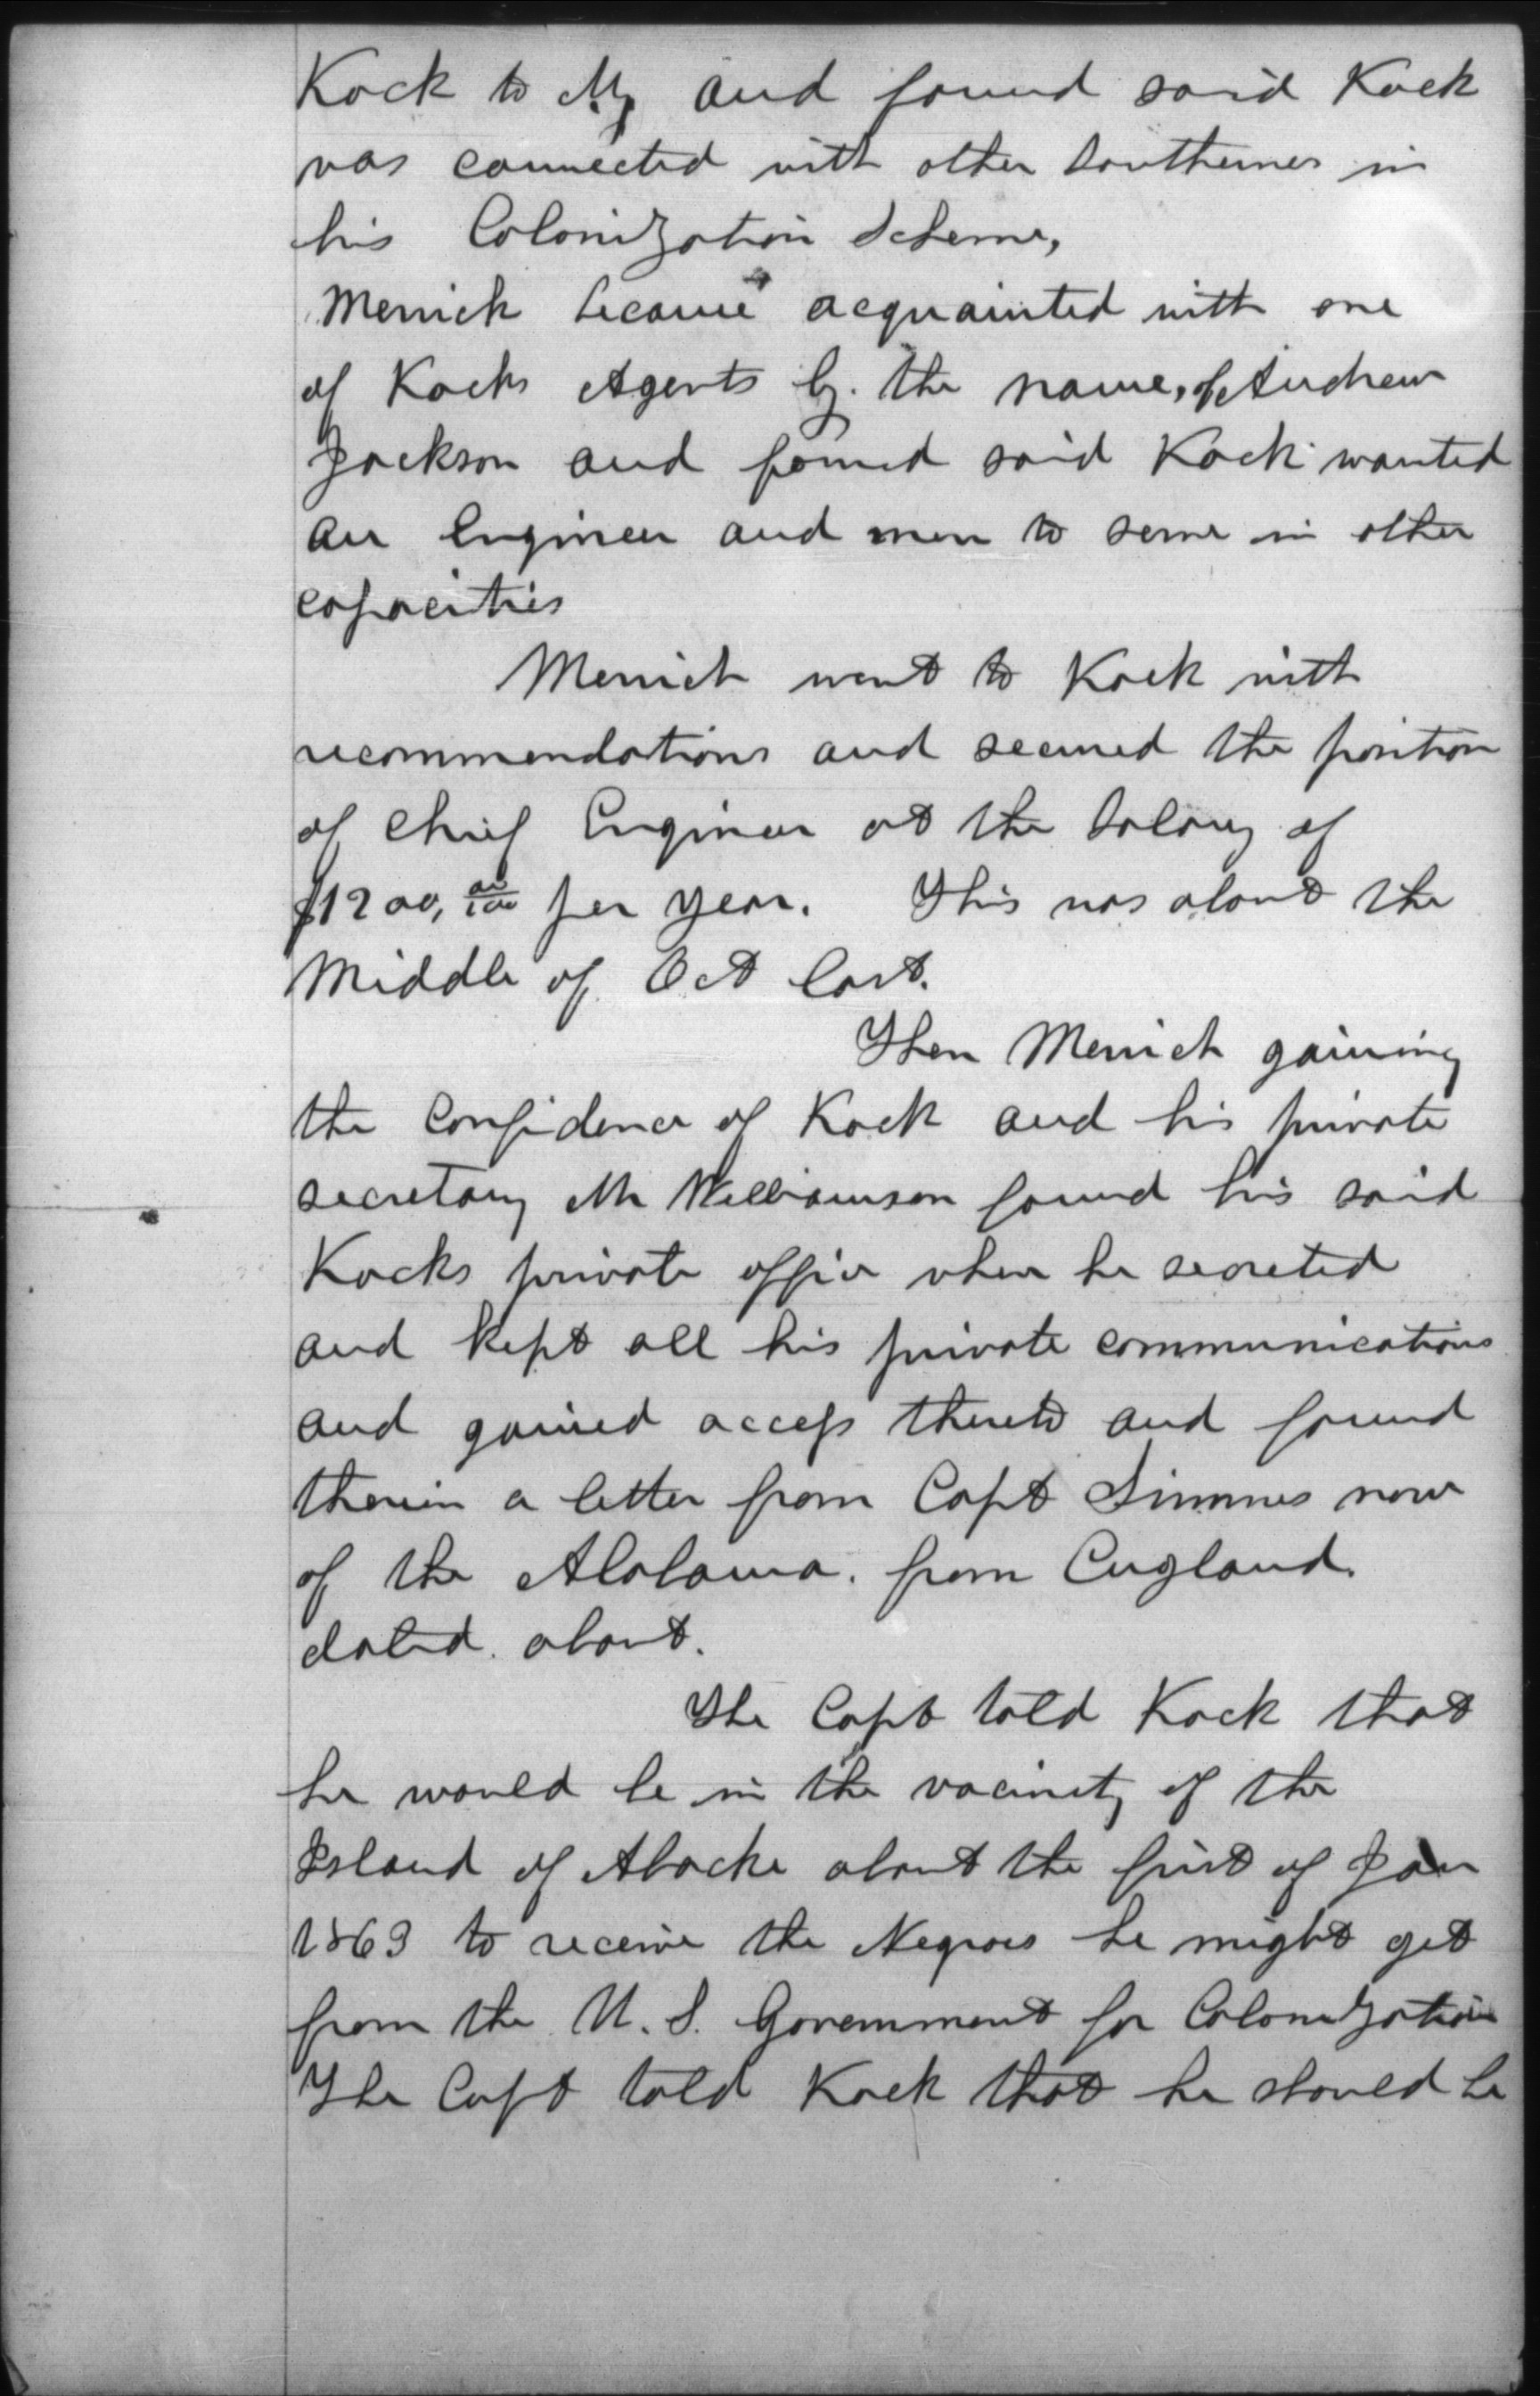 Kock to N.Y. and found said Kock
was connected with other Southerners in
his Colonization Scheme,
Merrick became acquainted with one
of Kocks Agents by the name, of Andrew
Jackson and found said Kock wanted
an Engineer and men to serve in other
capacities
Merrick went to Kock with
recommendations and secured the position
of chief Engineer at the Salary of
$1200, 00/100 per year. This was about the
Middle of Oct last.
Then Merrick gaining
the confidence of Kock and his private
secretary Mr Williamson found his said
Kocks private office where he secreted
and kept all his private communications
and gained access thereto and found
therein a letter from Capt Simmes now
of the Alabama. from England.
dated. about.
The Capt told Kock that
he would be in the vacinity of the
Island of Abache about the first of Jan
1863 to receive the Negroes he might get
from the U. S. Government for Colonization
The Capt told Kock that he should be